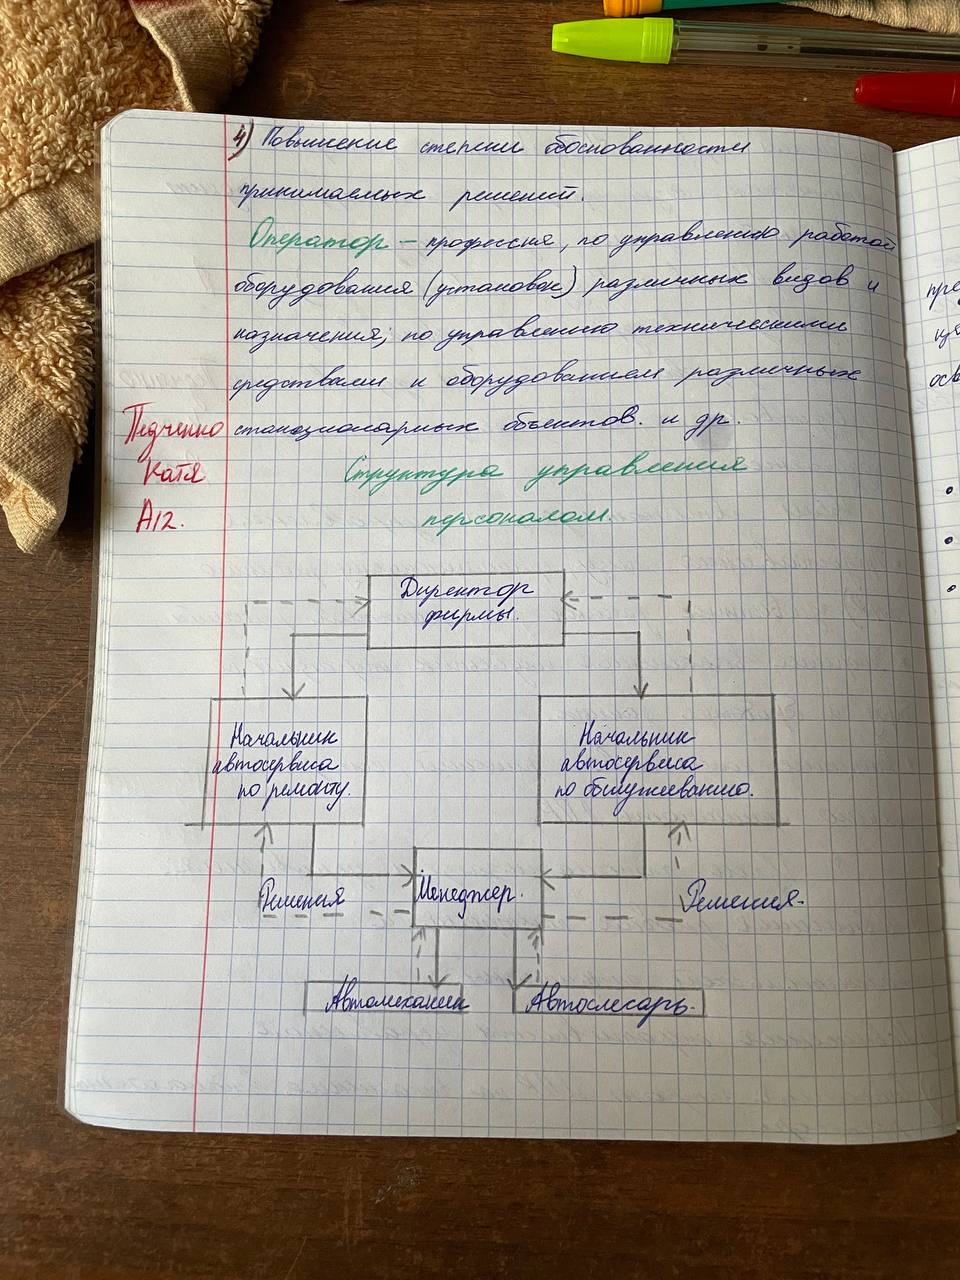 4) Повышение степени обоснованности
принимаемых решений.
Оператор – профессия, по управлению работой
оборудования (установок) различных видов и
назначения; по управлению техническими
средствами и оборудованием различных
стационарных объектов. и др.
Педченко
Катя
А12.
Структура управления
персоналом.
Директор
фирмы.
Начальник
автосервиса
по ремонту.
Начальник
автосервиса
по обслуживанию.
Решения
Менеджер.
Решения.
Автомеханик
Автослесарь.